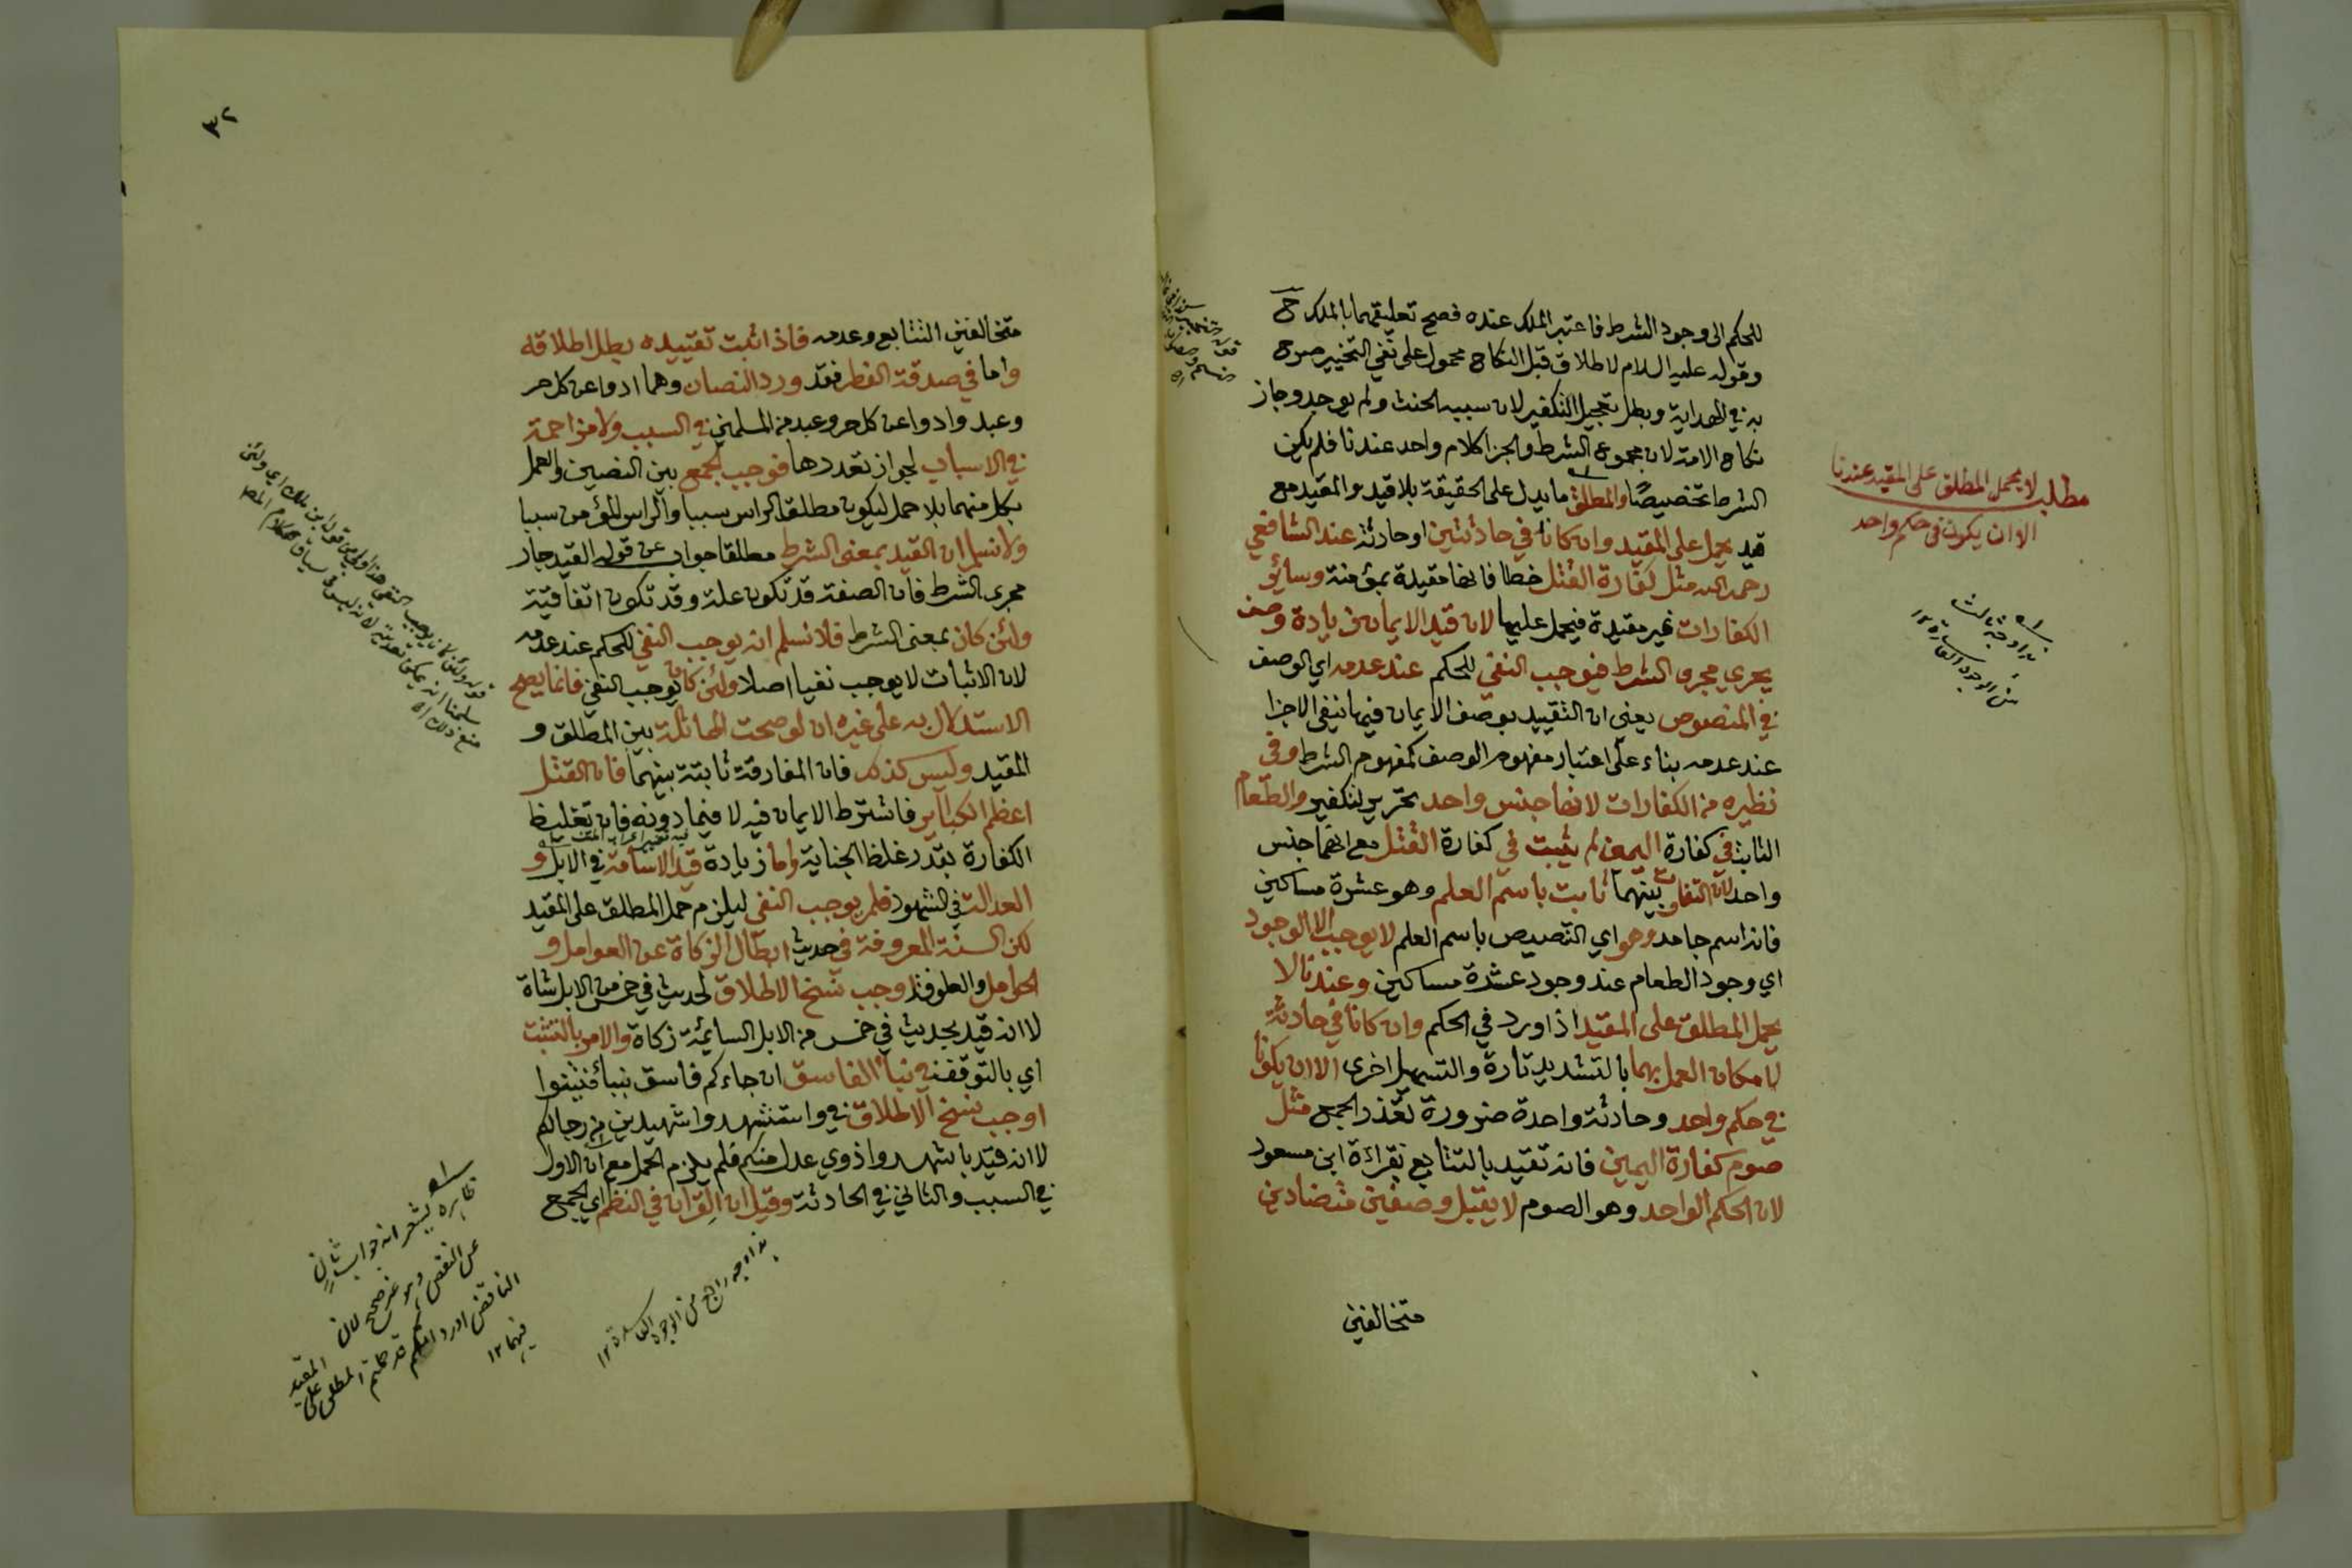 للحكم الى وجود الشرط فاعتبر الملك عنده فصح تعليقهما بالملك ح
وقوله عليه السلام لا طلاق قبل النكاح محمول على نفي التخيير صرح
به في الهداية وبطل تعجيل التكفير لان سببه الحنث ولم يوجد وجاز
نكاح الامة لان مجموع الشرط والجزا كلام واحد عندنا فلم يكن
الشرط تخصيصًا والمطلق ما يدل على الحقيقة بلا قيد والمقيد مع
قيد يحمل على المقيد وان كانا في حادثتين او حادثة عند الشافعي
رحمه الله مثل كفارة القتل خطا فانها مقيدة بمؤمنة وسائر
الكفارات غير مقيدة فيحمل عليها لان قيد الايمان زيادة وصف
يجري مجرى الشرط فيوجب النفي للحكم عند عدمه اي الوصف
في المنصوص يعني ان التقييد بوصف الايمان فيها ينفي الاجزا
عند عدمه بناء على اعتبار مفهوم الوصف كمفهوم الشرط وفي
نظيره من الكفارات لانها جنس واحد تحرير لتكفير والطعام
الثابت في كفارة اليمين لم يثبت في كفارة القتل مع انهما جنس
واحد لان التفاوت بينهما ثابت باسم العلم وهو عشرة مساكين
فانه اسم جامد وهو اي التنصيص باسم العلم لا يوجب الا الوجود
اي وجود الطعام عند وجود عشرة مساكين وعندنا لا
يحمل المطلق على المقيد اذا ورد في الحكم وان كانا في حادثة
لامكان العمل بهما بالتشديد تارة والتسهيل اخرى الا ان يكونا
في حكم واحد وحادثة واحدة ضرورة تعذر الجمع مثل
صوم كفارة اليمين فانه تقيد بالتتابع بقراءة ابن مسعود
لان الحكم الواحد وهو الصوم لا يقبل وصفين متضادين
متخالفين
مطلب لا يحمل المطلق على المقيد عندنا
الا ان يكون في حكم واحد
هذا وجه ثالث
من الوجوه الفاسدة ١٢
٣٢
متخالفين التتابع وعدمه فاذا ثبت تقييده بطل اطلاقه
واما في صدقة الفطر فقد ورد النصان وهما ادوا عن كل حر
وعبد وادوا عن كل حر وعبد من المسلمين في السبب ولا مزاحمة
في الاسباب لجواز تعددها فوجب الجمع بين النصين والعمل
بكل منهما بلا حمل ليكون مطلق الراس سببا والراس المؤمن سببا
ولا نسلم ان القيد بمعنى الشرط مطلقا جواب عن قوله القيد جار
مجرى الشرط فان الصفة قد تكون علة وقد تكون اتفاقية
ولئن كان بمعنى الشرط فلا نسلم انه يوجب النفي للحكم عند عدمه
لان الاثبات لا يوجب نفيا اصلا ولئن كان يوجب النفي فانما يصح
الاستدلال به على غيره ان لو صحت المماثلة بين المطلق و
المقيد وليس كذلك فان المفارقة ثابتة بينهما فان القتل
اعظم الكبائر فاشترط الايمان فيه لا فيما دونه فان تغليظ
الكفارة بقدر غلظ الجناية واما زيادة قيد الاسامة في الابل و
العدالة في الشهود فلم يوجب النفي ليلزم حمل المطلق على المقيد
لكن السنة المعروفة في حديث ابطال الزكاة عن العوامل و
الحوامل والعلوفة اوجب نسخ الاطلاق لحديث في خمس من الابل شاة
لا انه قيد بحديث في خمس من الابل السائمة زكاة والامر بالتثبت
اي بالتوقف في نبأ الفاسق ان جاءكم فاسق بنبأ فتثبتوا
اوجب نسخ الاطلاق في واستشهدوا شهيدين من رجالكم
لا انه قيد باشهدوا ذوي عدل منكم فلم يلزم الحمل مع ان الاول
في السبب والثاني في الحادثة وقيل ان القران في النظم اي الجمع
ظاهره يشعر انه جواب ثان
عن النقض وهو غير صحيح لان
الناقض اورد انكم قد حملتم المطلق على المقيد
فيهما ١٢
هذا وجه رابع من الوجوه الفاسدة ١٢